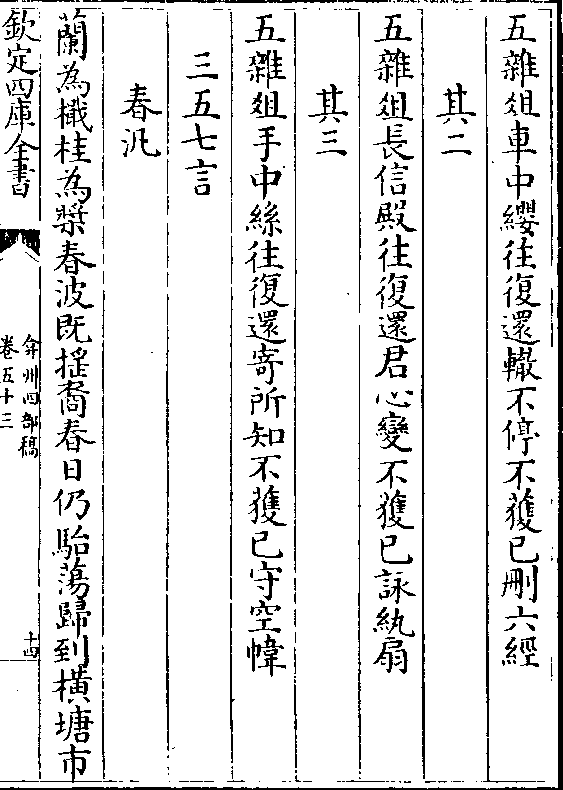 五雜爼車中纓往復還轍不停不獲已刪六經
其二
五雜爼長信殿往復還君心變不獲已詠紈扇
其三
五雜爼手中絲往復還寄所知不獲已守空幃
三五七言
春汎
蘭為檝桂為槳春波既揺裔春日仍駘蕩歸到横塘市
欽定四庫全書
弇州四部稿
卷五十三
十四